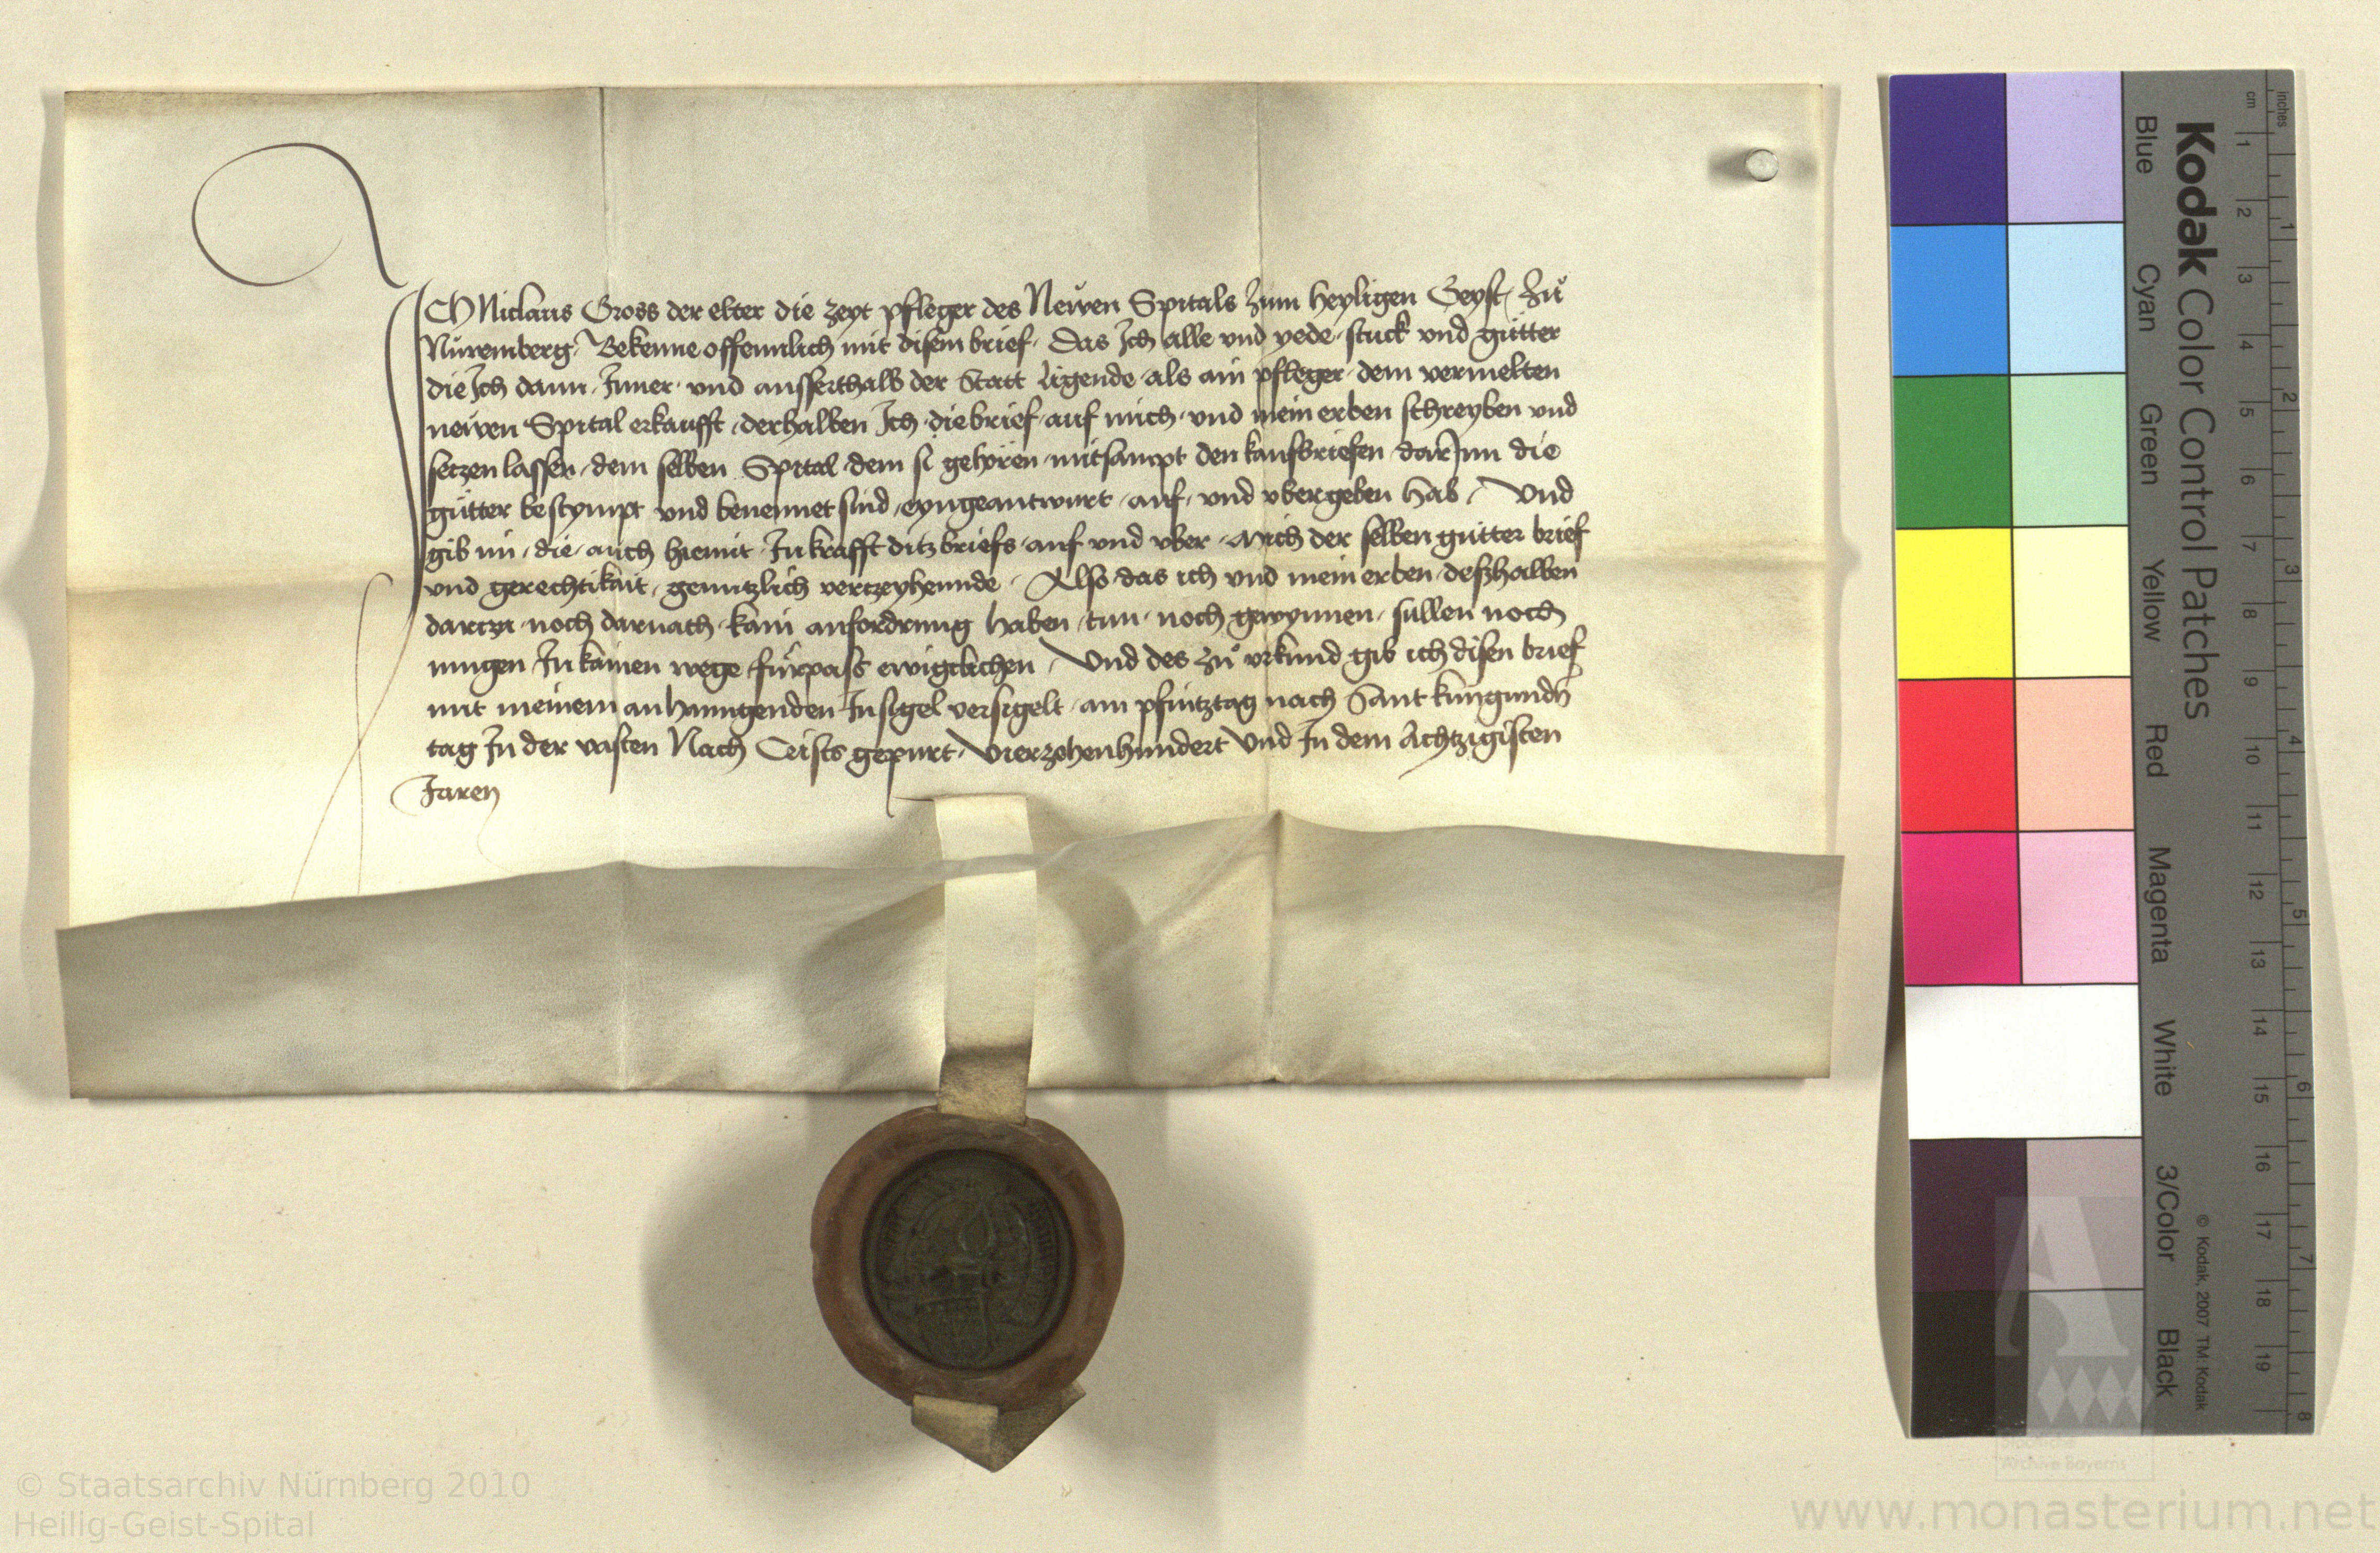 ICH Niclaus Gross der elter die zeyt pfleger des Newen Spitals zum heyligen Geyst / zů
Nüremberg / Bekenne offennlich mit disem brief / Das Ich alle und yede stuck vnd gütter
die Ich dann / Inner vnd ausserthalb der Statt ligende als ain pfleger dem vermelten
newen Spital erkaufft / derhalben Ich die brief auf mich vnd mein erben schreyben vnd
setzen lassen / dem selben Spital dem si gehören mitsampt den kaufbriefen darInn die
gütter bestympt vnd benennet sind / eyngeantwurt / auf / vnd vbergeben hab / Vnd
gib in / die / auch hiemit In krafft ditz briefs auf vnd vber / mich der selben gütter brief
vnd gerechtikait / genntzlich verczeyhennde / Also das ich vnd mein erben deszhalben
darczu noch darnach kain anfordrung haben / tun noch gewynnen / süllen noch
mügen In kainen wege fürpass ewigclichen / Vnd des zů vrkund gib ich disen brief
mit meinem anhanngenden Insigel versigelt / am pfintztag nach Sant kungundn
tag In der vasten Nach Crists gepurt / vierzehenhundert Vnd In dem Achtzigisten
Jaren
Kodak Color Control Patches
Blue Cyan Green Yellow Red Magenta White 3/Color Black
© Kodak, 2007 TM: Kodak
cm 1 2 3 4 5 6 7 8 9 10 11 12 13 14 15 16 17 18 19
inches 1 2 3 4 5 6 7 8
Archive Bayerns
© Staatsarchiv Nürnberg 2010
Heilig-Geist-Spital
www.monasterium.net